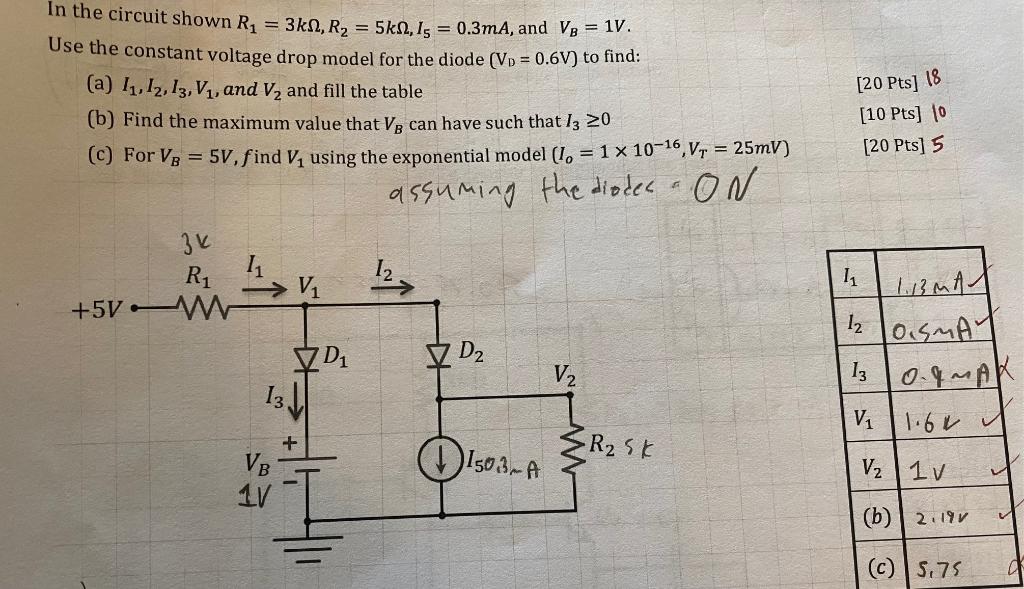 In the circuit shown R₁ = 3kΩ, R₂ = 5kΩ, I₅ = 0.3mA, and V_B = 1V.
Use the constant voltage drop model for the diode (V_D = 0.6V) to find:
(a) I₁, I₂, I₃, V₁, and V₂ and fill the table [20 Pts] 18
(b) Find the maximum value that V_B can have such that I₃ ≥0 [10 Pts] 10
(c) For V_B = 5V, find V₁ using the exponential model (I₀ = 1 × 10⁻¹⁶, V_T = 25mV) [20 Pts] 5
assuming the diodes = ON
3k
R₁ I₁ V₁ I₂
+5V
D₁ D₂ V₂
I₃
+
V_B I₅ 0.3mA R₂ 5k
−
1V
I₁ 1.13mA ✓
I₂ 0.5mA ✓
I₃ X
V₁ 1.6V ✓
V₂ 1V ✓
(b) 2.19V ✓
(c) 5.75